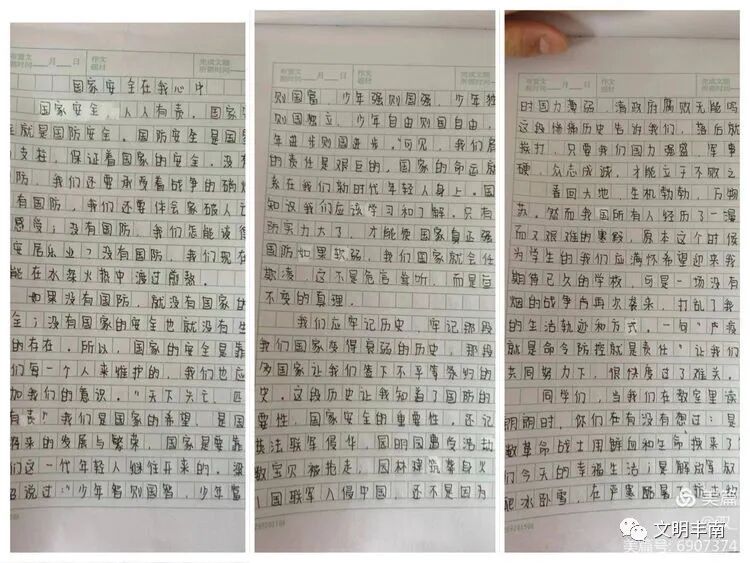 作文
题材
完成文题
所需时间
国家安全在我心中
国家安全,人人有责,国家
就是国防安全。国防安全是国
支柱,保证着国家的安全,没有
防,我们还要承受着战争的
有国防,我们还要体会家破人
感受;没有国防,我们怎能谈
安居乐业?没有国防,我们现在
能在水深火热中渡过煎熬。
如果没有国防,就没有国家的
全;没有国家的安全也就没有生
的存在。所以,国家的安全是靠
们每一个人来维护的,我们也应
加我们的意识。“天下兴亡,匹
有责”我们是国家的希望,是国
将来的发展与繁荣,国家是要靠
们这一代年轻人继往开来的。梁
说过:“少年智则国智,少年富
作文
题材
完成文题
所需时间
则国富,少年强则国强,少年独
则国独立,少年自由则国自由,
年进步则国进步。”可见,我们肩
的责任是艰巨的,国家的命运就
系在我们新时代年轻人身上。国
知识我们应该学习和了解。只有
防实力大了,才能使国家真正强
国防如果软弱,我们国家就会任
欺凌,这不是危言耸听,而是亘
不变的真理。
我们应牢记历史,牢记那段
我们国家变得衰弱的历史,那段
多国家让我们签下不平等条约的
史。这段历史让我知道了国防的
要性,国家安全的重要性。还记
英法联军侵华,圆明园事
数宝贝被抢走,园林建筑葬身火
国联军入侵中国,还不是因为
作文
题材
完成文题
所需时间
时国力薄弱,清政府腐败无能吗
这段惨痛历史告诉我们,落后就
挨打,只要我们国力强盛,军事
硬,众志成诚,才能立于不败之
看回大地,生机勃勃,万物
苏。然而我国所有人经历了一漫
而又艰难的寒假,原本这个时候
为学生的我们应满怀希望迎来我
期待已久的学校,可是一场没有
烟的战争再次袭来,打乱了我
的生活轨迹和方式。一句“严疫
就是命令防控就是责任”让我们
共同努力下,很快度过了难关。
同学们,当我们在教室里读
朗朗时,你们在有没有想过:是
数革命战士用鲜血和生命换来了
们今天的幸福生活;是解放军放
爬冰卧雪,在严寒酷暑
美篇
文明丰南
美篇号: 6907374